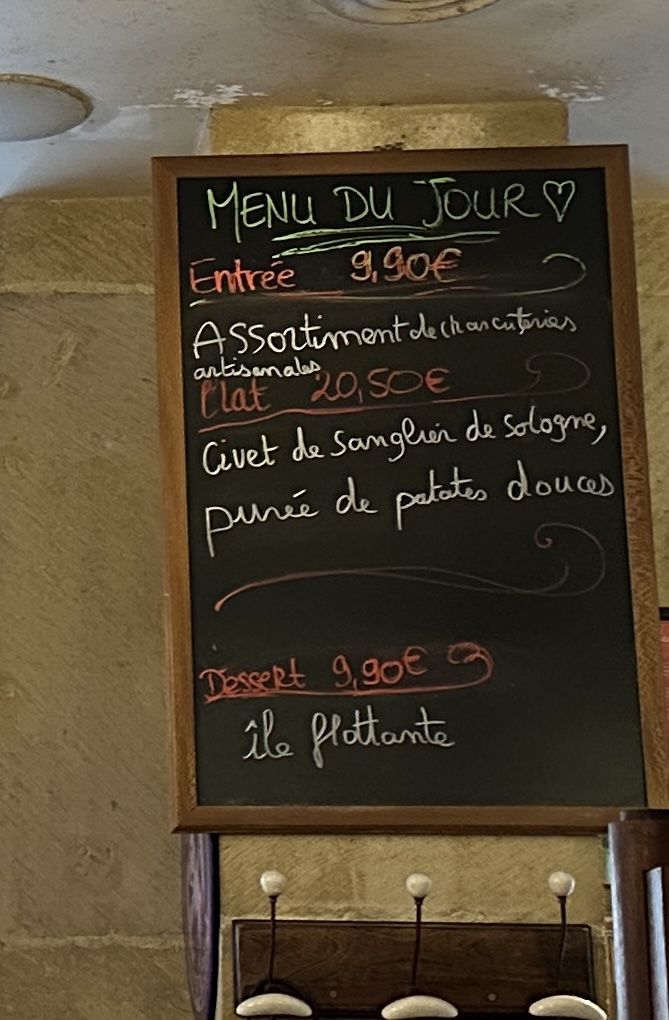 MENU DU JOUR ♡
Entrée 9,90€
Assortiment de charcuteries
artisanales
Plat 20,50€
Civet de sanglier de Sologne,
purée de patates douces
Dessert 9,90€
île flottante